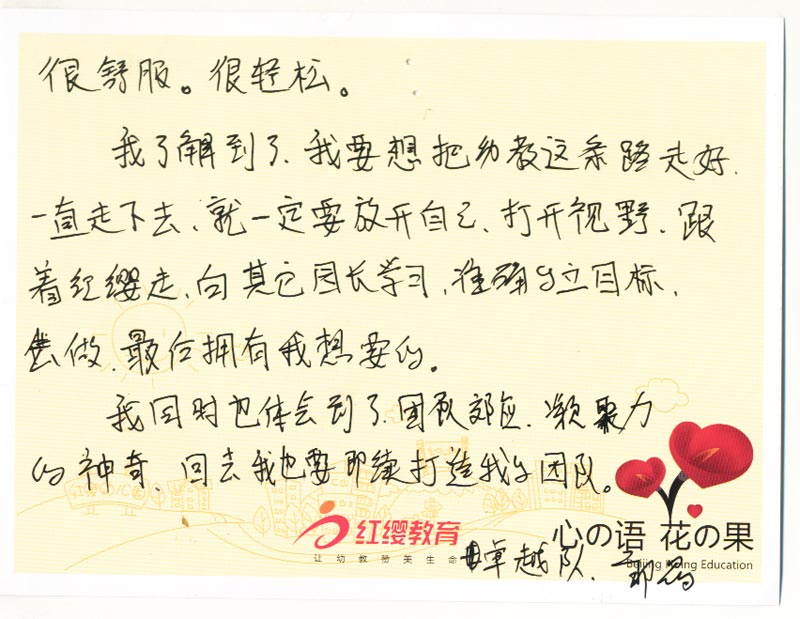 很舒服。很轻松。
我了解到了、我要想把幼教这条路走好、
一直走下去、就一定要放开自己、打开视野、跟
着红缨走、向其它园长学习、准确的立目标、
去做、最后拥有我想要的。
我同时也体会到了、团队效应、凝聚力
的神奇 回去我也要即续打造我的团队。
红缨教育
让幼教赞美生命
心の语 花の果
Beijing Hoing Education
卓越队、